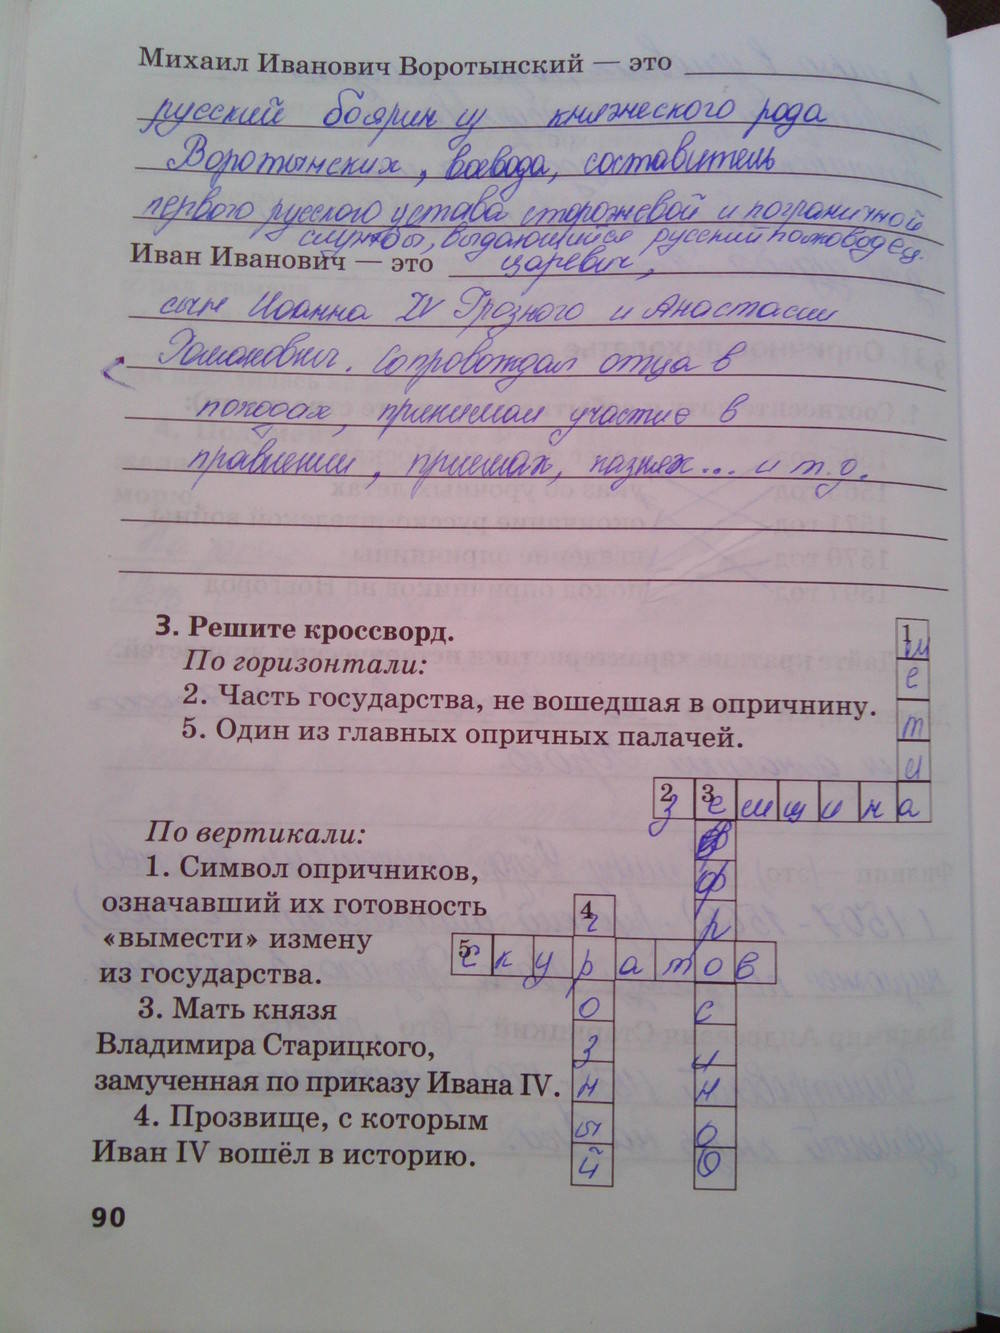 Михаил Иванович Воротынский — это
русский боярин из княжеского рода
Воротынских, воевода, составитель
первого русского устава сторожевой и пограничной
службы, выдающийся русский полководец.
Иван Иванович — это царевич,
сын Иоанна IV Грозного и Анастасии
Романовны. Сопровождал отца в
походах, принимал участие в
правлении, приемах, казнях... и т.д.
3. Решите кроссворд.
По горизонтали:
2. Часть государства, не вошедшая в опричнину.
5. Один из главных опричных палачей.
По вертикали:
1. Символ опричников,
означавший их готовность
«вымести» измену
из государства.
3. Мать князя
Владимира Старицкого,
замученная по приказу Ивана IV.
4. Прозвище, с которым
Иван IV вошёл в историю.
1 метла
2 земщина
3 ефросиниб
4 грозный
5 скуратов
90